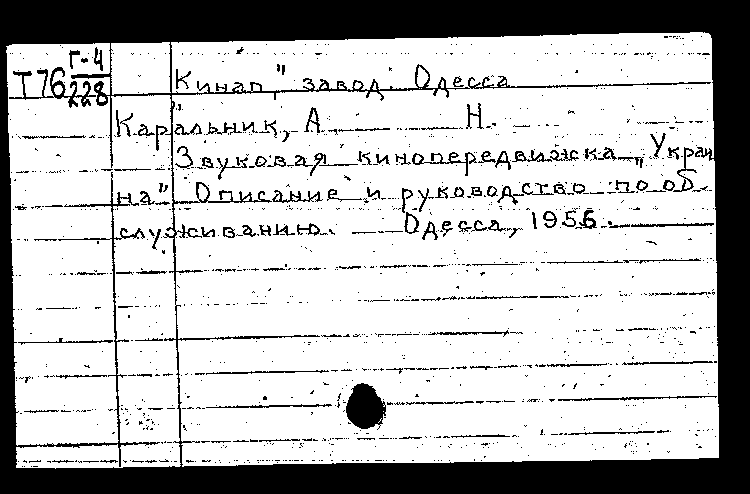 Г-4
Т76 228
Кинап," завод. Одесса
Каральник, А Н.
Звуковая кинопередвижка „Украи
на" Описание и руководство по об-
служиванию. Одесса, 1956.